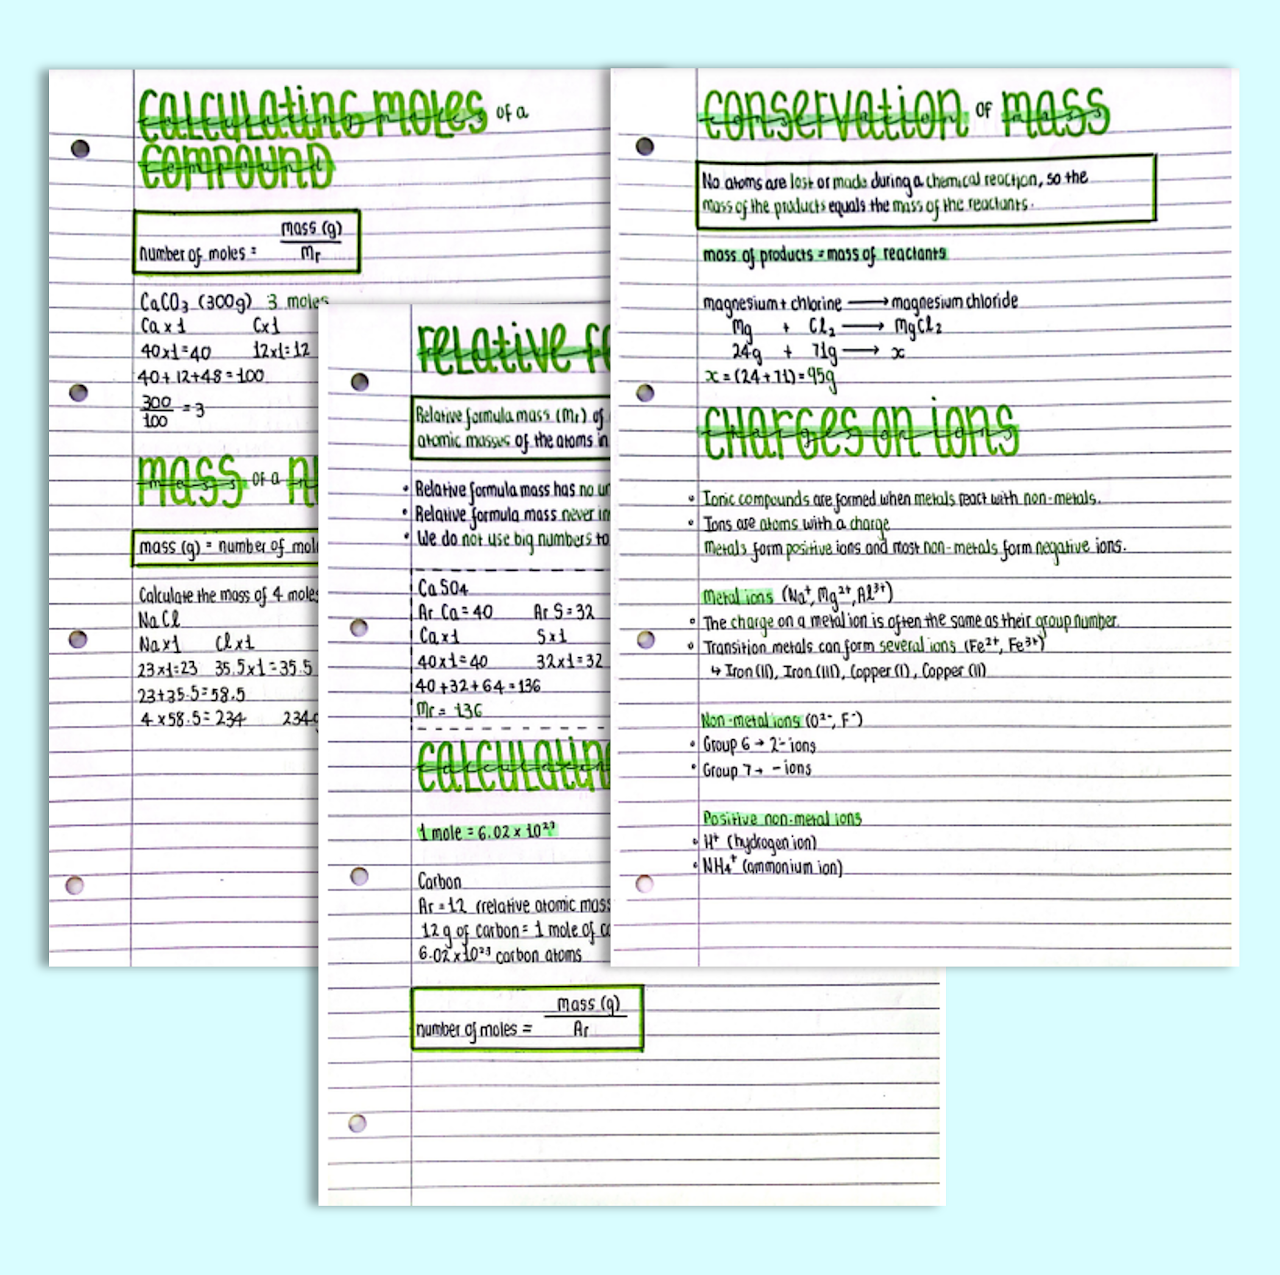 Calculating moles of a
compound
number of moles = mass (g) / Mr
CaCO₃ (300g) 3 moles
Ca x 1 C x 1
40x1=40 12x1=12
40 + 12 + 48 = 100
300/100 = 3
mass of a
mass (g) = number of mol
Calculate the mass of 4 moles
NaCl
Na x 1 Cl x 1
23x1=23 35.5x1=35.5
23+35.5=58.5
4 x 58.5 = 234 234g
relative fo
Relative formula mass (Mr) of
atomic masses of the atoms in
• Relative formula mass has no un
• Relative formula mass never in
• We do not use big numbers to
CaSO4
Ar Ca = 40 Ar S = 32
Ca x 1 S x 1
40x1=40 32x1=32
40 + 32 + 64 = 136
Mr = 136
calculatin
1 mole = 6.02 x 10²³
Carbon
Ar = 12 (relative atomic mass
12g of carbon = 1 mole of ca
6.02 x 10²³ carbon atoms
number of moles = mass (g) / Ar
conservation of mass
No atoms are lost or made during a chemical reaction, so the
mass of the products equals the mass of the reactants.
mass of products = mass of reactants
magnesium + chlorine → magnesium chloride
Mg + Cl₂ → MgCl₂
24g + 71g → x
x = (24 + 71) = 95g
charges on ions
• Ionic compounds are formed when metals react with non-metals.
• Ions are atoms with a charge
Metals form positive ions and most non-metals form negative ions.
Metal ions (Na⁺, Mg²⁺, Al³⁺)
• The charge on a metal ion is often the same as their group number.
• Transition metals can form several ions (Fe²⁺, Fe³⁺)
↳ Iron (II), Iron (III), Copper (I), Copper (II)
Non-metal ions (O²⁻, F⁻)
• Group 6 → 2⁻ ions
• Group 7 → - ions
Positive non-metal ions
• H⁺ (hydrogen ion)
• NH₄⁺ (ammonium ion)